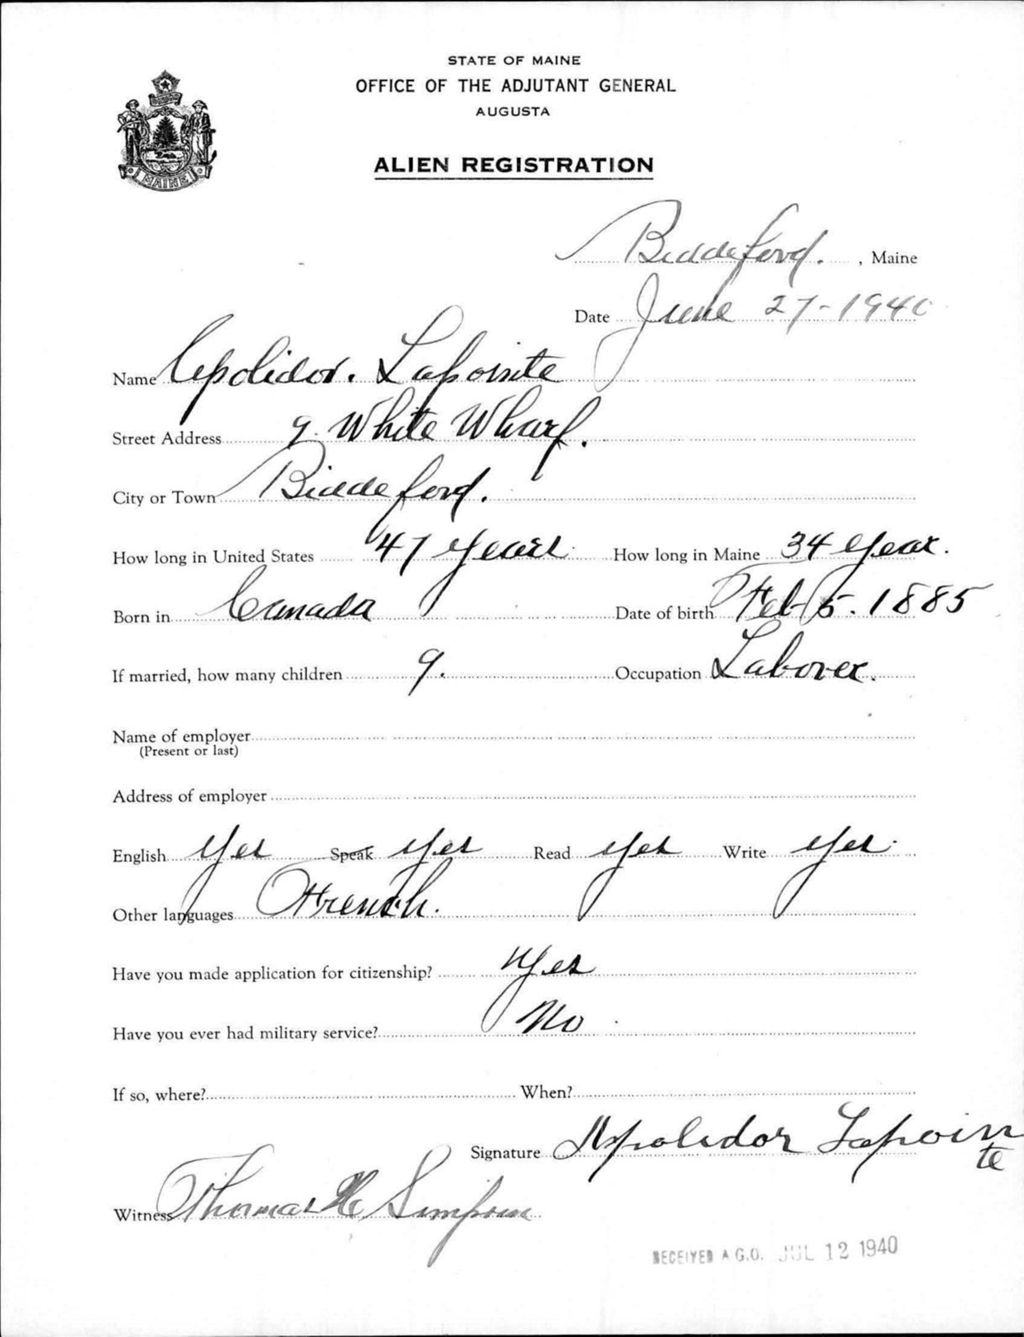 STATE OF MAINE
OFFICE OF THE ADJUTANT GENERAL
AUGUSTA
MAINE
ALIEN REGISTRATION
Biddeford. , Maine
Date June 27-1940
Name Apolidor. Lapointe
Street Address 9 White Wharf.
City or Town Biddeford.
How long in United States 47 years How long in Maine 34 year.
Born in Canada Date of birth Feb 5. 1885
If married, how many children 9. Occupation Laborer.
Name of employer
(Present or last)
Address of employer
English Yes Speak yes Read yes Write yes.
Other languages French.
Have you made application for citizenship? Yes
Have you ever had military service? No
If so, where? When?
Signature Apolidor Lapointe
Witness Thomas H Simpson
RECEIVED A.G.O. JUL 12 1940